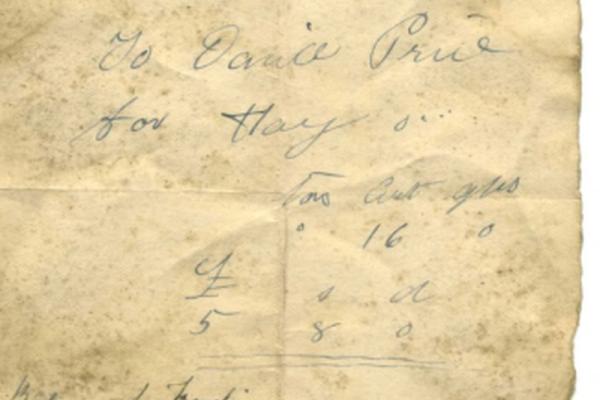 To David Price
for Hay
Tons Cwt qrs
0 16 0
£ s d
5 8 0